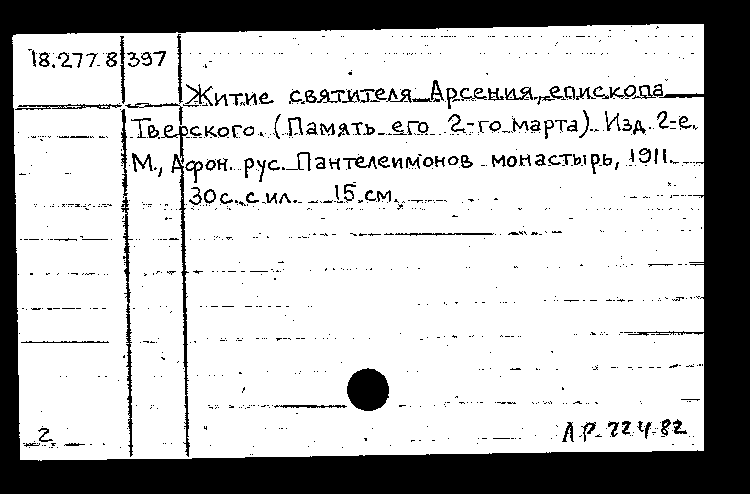 18.277.8 397
Житие святителя Арсения, епископа
Тверского. (Память его 2-го марта). Изд. 2-е.
М., Афон. рус. Пантелеимонов монастырь, 1911.
30 с. с ил. 15 см.
2
АР-22482